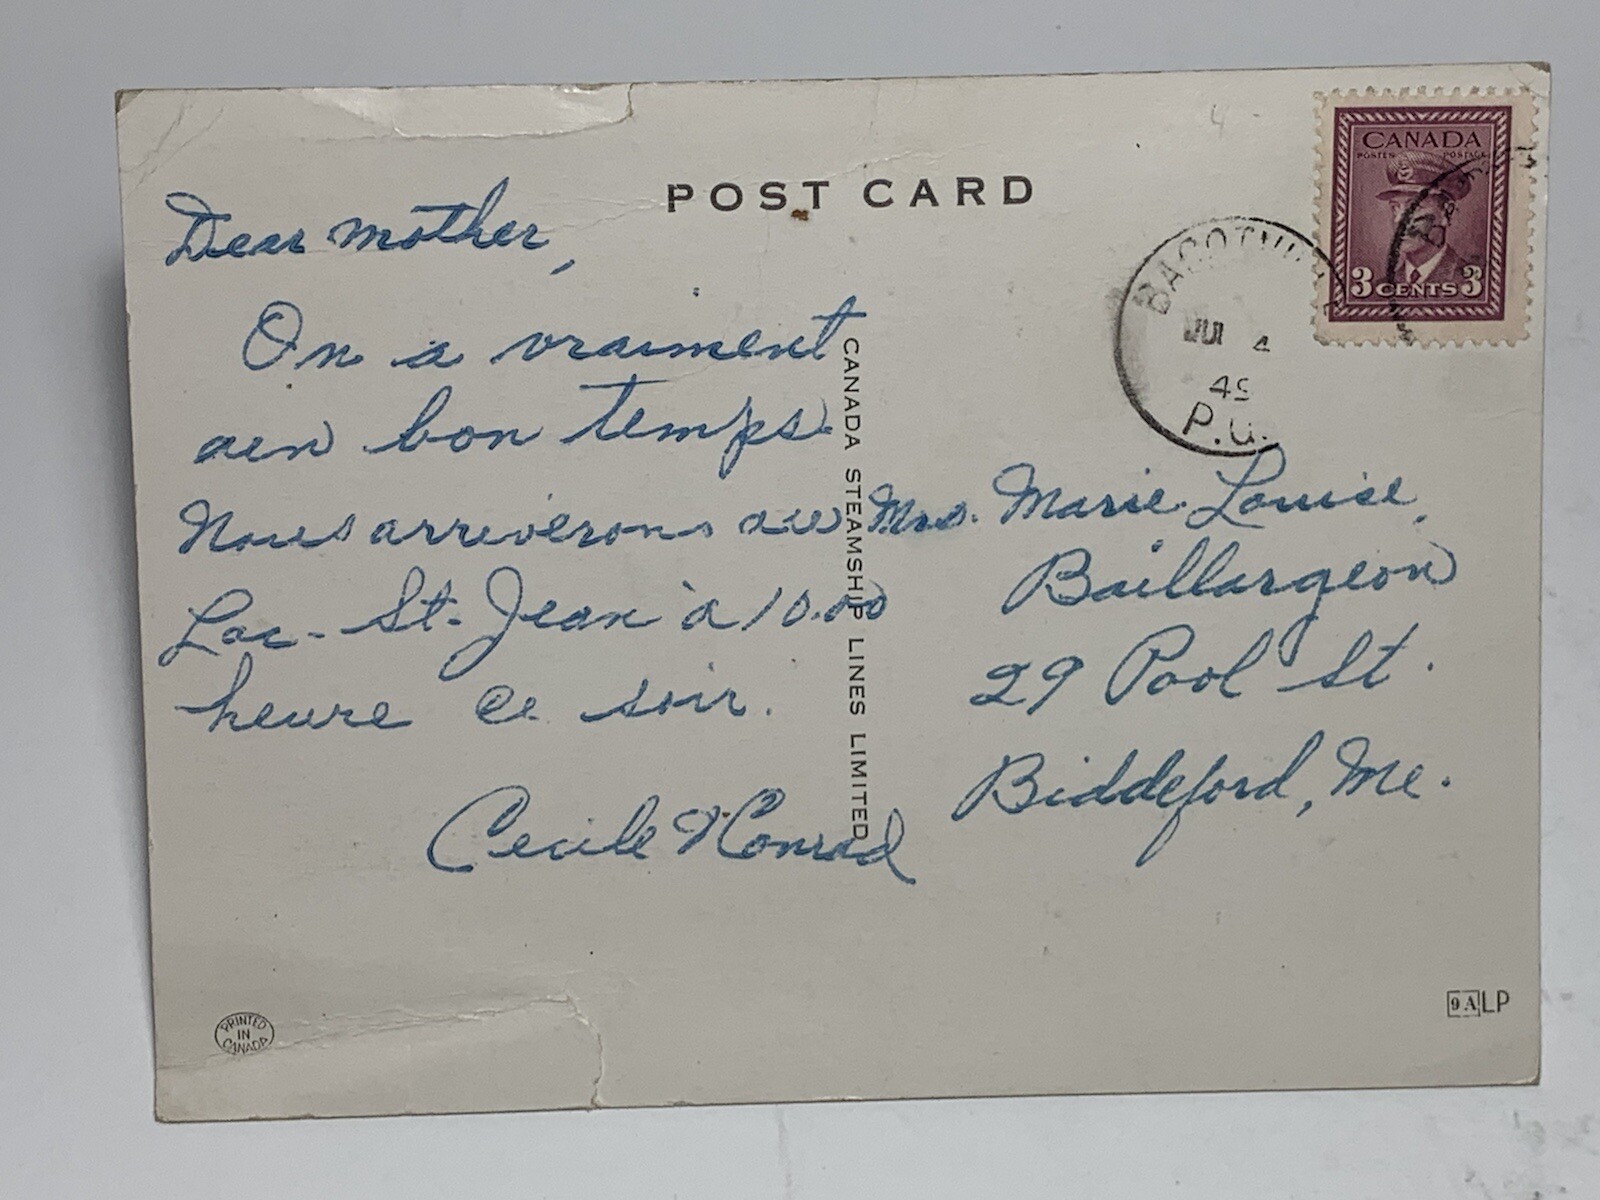 POST CARD
Dear Mother,
On a vraiment
un bon temps.
Nous arriverons au
Lac-St-Jean à 10.00
heure ce soir.
Cecile & Conrad
CANADA STEAMSHIP LINES LIMITED
Mrs. Marie Louise
Baillargeon
29 Pool St.
Biddeford, Me.
CANADA
POSTES POSTAGE
3 CENTS 3
BAGOTVILLE
JUL 4
49
P.Q.
PRINTED
IN
CANADA
9A LP